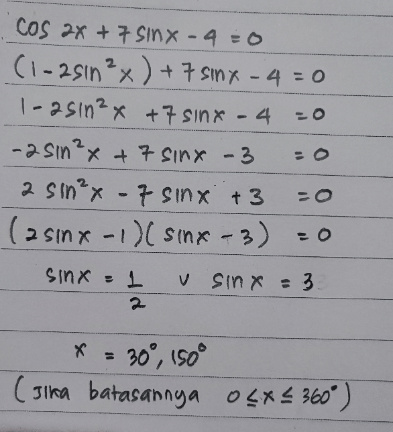 cos 2x + 7 sinx - 4 = 0
(1 - 2sin²x) + 7 sinx - 4 = 0
1 - 2sin²x + 7 sinx - 4 = 0
-2sin²x + 7 sinx - 3 = 0
2 sin²x - 7 sinx + 3 = 0
(2sinx - 1)(sinx - 3) = 0
sinx = 1/2 v sinx = 3
x = 30°, 150°
(Jika batasannya 0 ≤ x ≤ 360°)